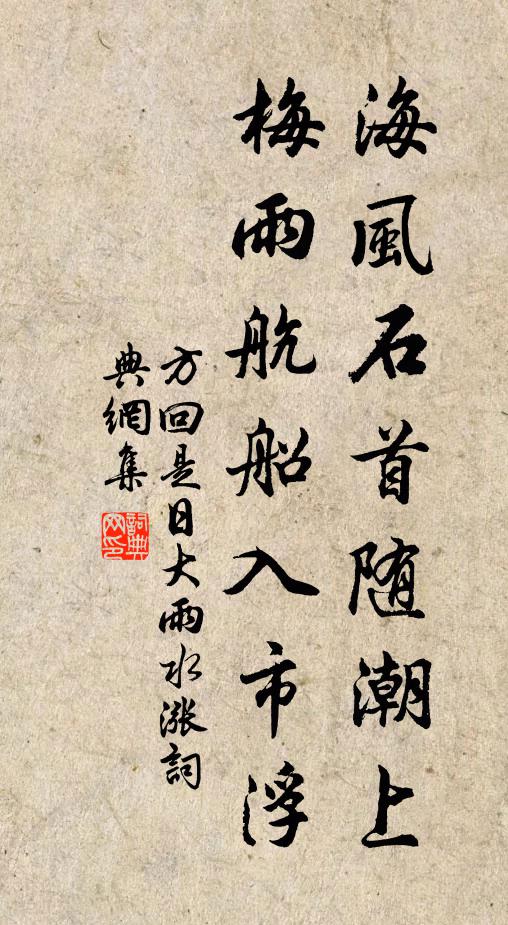 海風石首随潮上
梅雨航船入市浮
方回是日大雨水漲詞
典網集
詞典網印